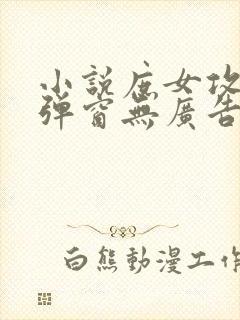 小說庶女攻
彈窗無廣告
白熊動漫工作